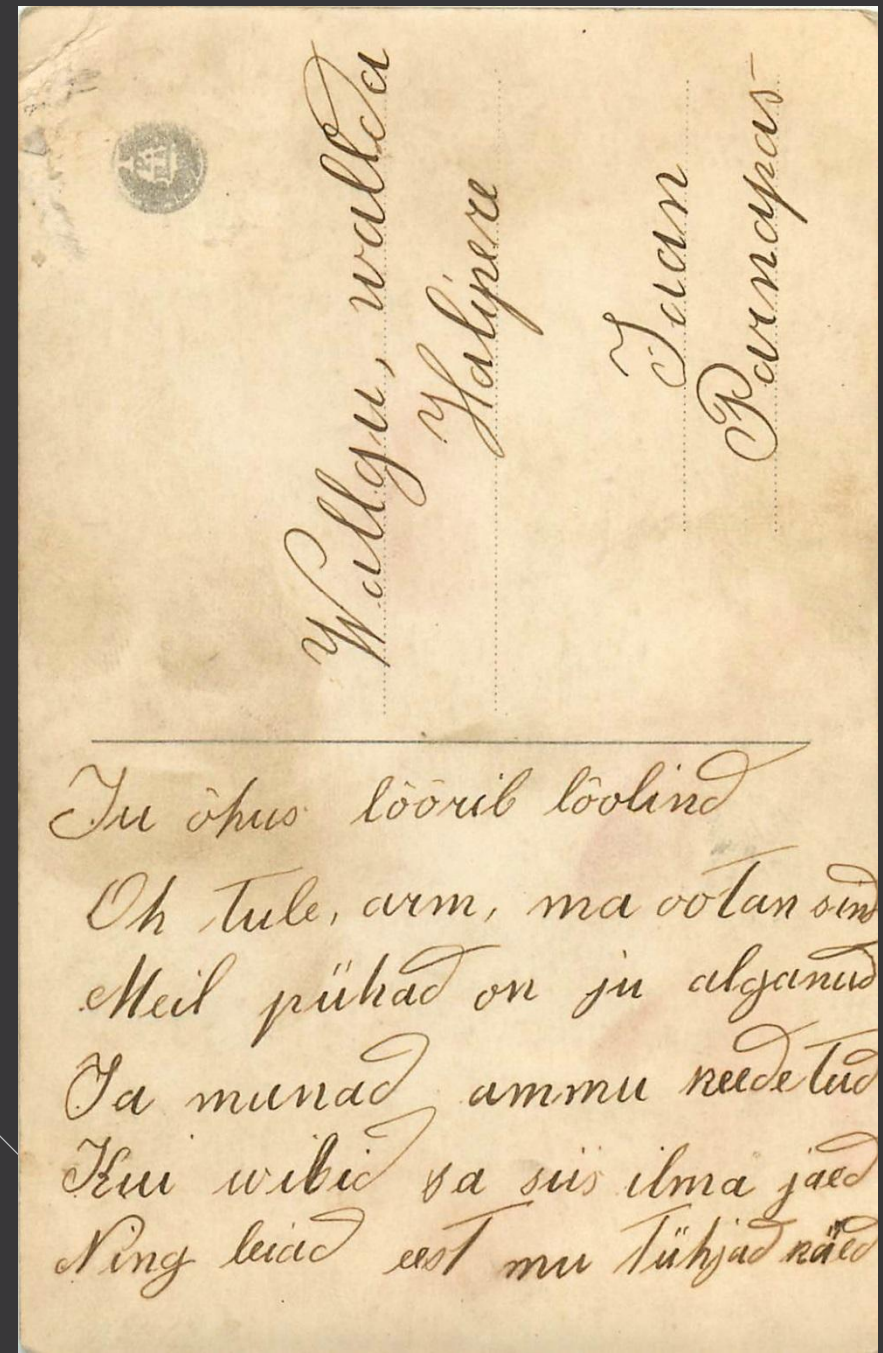 Wallgu, wallda
Halipere
Jaan
Parnapas
Ju õhus lõõrib lõolind
Oh tule, arm, ma ootan sind
Meil pühad on ju alganud
Ja munad ammu keedetud
Kui wibid sa siis ilma jaed
Ning leiad eest mu tühjad käed